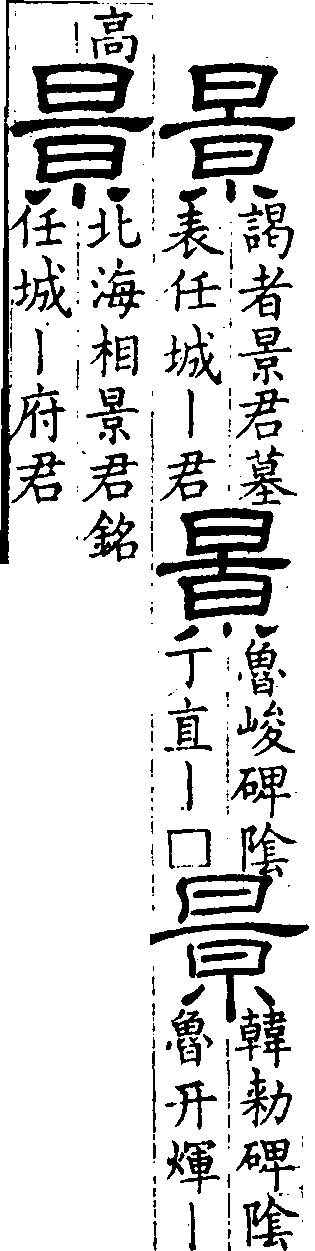 景
謁者景君墓
表任城丨君
景
魯峻碑陰
丁直丨□
景
韓勑碑陰
魯开煇丨
高
景
北海相景君銘
任城丨府君